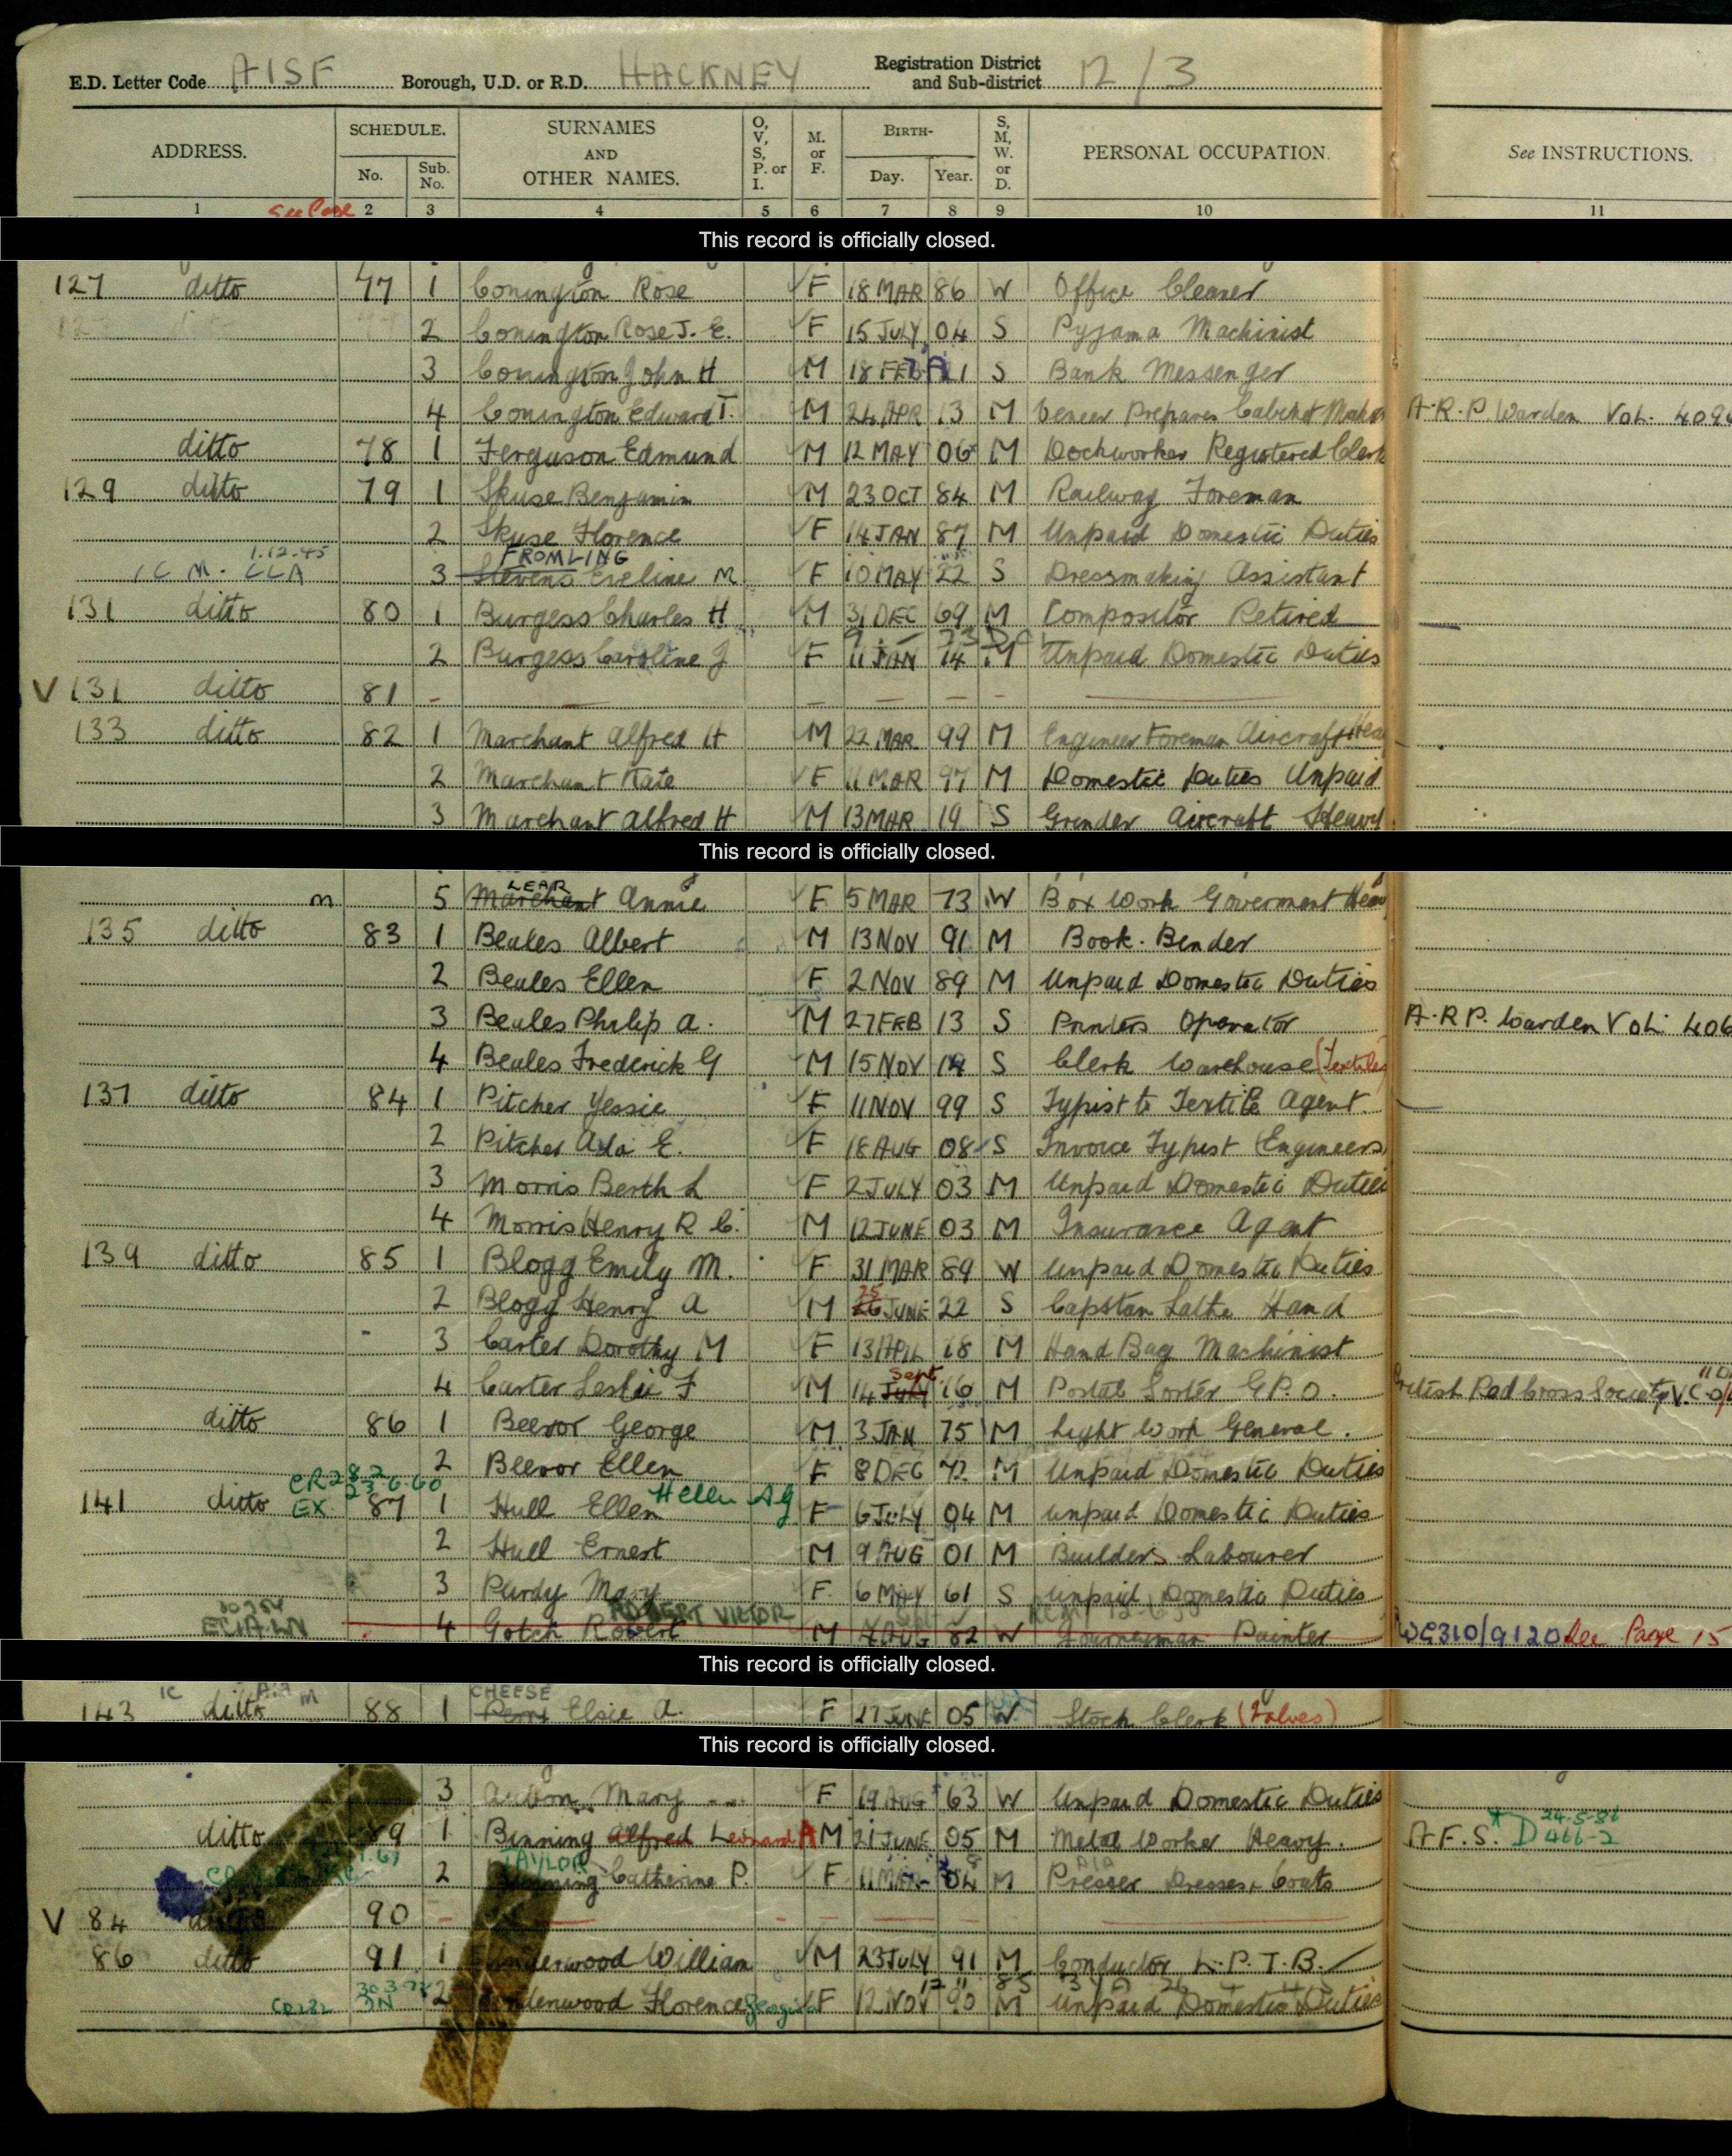 E.D. Letter Code AISF Borough, U.D. or R.D. HACKNEY Registration District and Sub-district 12/3
ADDRESS. SCHEDULE. No. Sub. No. SURNAMES AND OTHER NAMES. O, V, S, P. or I. M. or F. BIRTH- Day. Year. S, M, W. or D. PERSONAL OCCUPATION. See INSTRUCTIONS.
1 See Page 2 3 4 5 6 7 8 9 10 11
This record is officially closed.
127 ditto 77 1 Conington Rose F 18 MAR 86 W Office Cleaner
2 Conington Rose J. E. F 15 JULY 04 S Pyjama Machinist
3 Conington John H M 18 FEB 21 S Bank Messenger
4 Conington Edward T. M 24 APR 13 M Veneer Preparer Cabinet A.R.P. Warden Vol. 409
ditto 78 1 Ferguson Edmund M 12 MAY 06 M Dockworker Registered Clerk
129 ditto 79 1 Skuse Benjamin M 23 OCT 84 M Railway Foreman
2 Skuse Florence F 14 JAN 87 M Unpaid Domestic Duties
1.12.45 FROMLING
CLA 3 Stevens Eveline M F 10 MAY 22 S Dressmaking Assistant
131 ditto 80 1 Burgess Charles H M 31 DEC 69 M Compositor Retired
2 Burgess Caroline J F 11 JAN 74 M Unpaid Domestic Duties
V 131 ditto 81 - - - - -
133 ditto 82 1 Marchant Alfred H M 22 MAR 99 M Engineer Foreman Aircraft
2 Marchant Kate F 11 MAR 97 M Domestic Duties Unpaid
3 Marchant Alfred H M 13 MAR 19 S Grinder Aircraft Heavy
This record is officially closed.
LEAR
m 5 Marchant Annie F 5 MAR 73 W Box Work Goverment
135 ditto 83 1 Beales Albert M 13 NOV 91 M Book. Binder
2 Beales Ellen F 2 NOV 89 M Unpaid Domestic Duties
3 Beales Philip A. M 27 FEB 13 S Printers Operator A.R.P. Warden Vol. 406
4 Beales Frederick G M 15 NOV 14 S Clerk Warehouse (Textiles)
137 ditto 84 1 Pitcher Jessie F 11 NOV 99 S Typist to Textile Agent.
2 Pitcher Ada E. F 18 AUG 08 S Invoice Typist (Engineers)
3 Morris Berth L F 2 JULY 03 M Unpaid Domestic Duties
4 Morris Henry R C. M 12 JUNE 03 M Insurance Agent
139 ditto 85 1 Blogg Emily M. F 31 MAR 89 W Unpaid Domestic Duties
2 Blogg Henry A M 26 25 JUNE 22 S Capstan Lathe Hand
3 Carter Dorothy M F 13 APIL 18 M Hand Bag Machinist
4 Carter Leslie F M 14 July Sept. 16 M Postal Sorter G.P.O. British Red Cross Society
ditto 86 1 Beevor George M 3 JAN 75 M Light Work General.
2 Beevor Ellen F 8 DEC 72 M Unpaid Domestic Duties
CR282 23.6.60
141 ditto EX 87 1 Hull Ellen Hellen A G F 6 JULY 04 M Unpaid Domestic Duties
2 Hull Ernest M 9 AUG 01 M Builders Labourer
3 Purdy Mary F 6 MAY 61 S Unpaid Domestic Duties
4 Gotch Robert ROBERT VICTOR M AUG 82 W Journeyman Painter WC310/9120 See Page 15
This record is officially closed.
CHEESE
143 ditto m 88 1 Perry Elsie A. F 27 JUNE 05 W Stock Clerk (Valves)
This record is officially closed.
3 Mary F 19 AUG 63 W Unpaid Domestic Duties
ditto 89 1 Binning Alfred Leonard A M 21 JUNE 05 M Metal Worker Heavy. A.F.S. D 466-2 24-5-86
TAYLOR
2 Binning Catherine P. F 11 MAR 04 M Presser Dresses & Coats
V 84 ditto 90 - - - - -
86 ditto 91 1 Underwood William M 23 JULY 91 M Conductor L.P.T.B.
CR282 2 Underwood Florence Georgina F 12 NOV 90 M Unpaid Domestic Duties